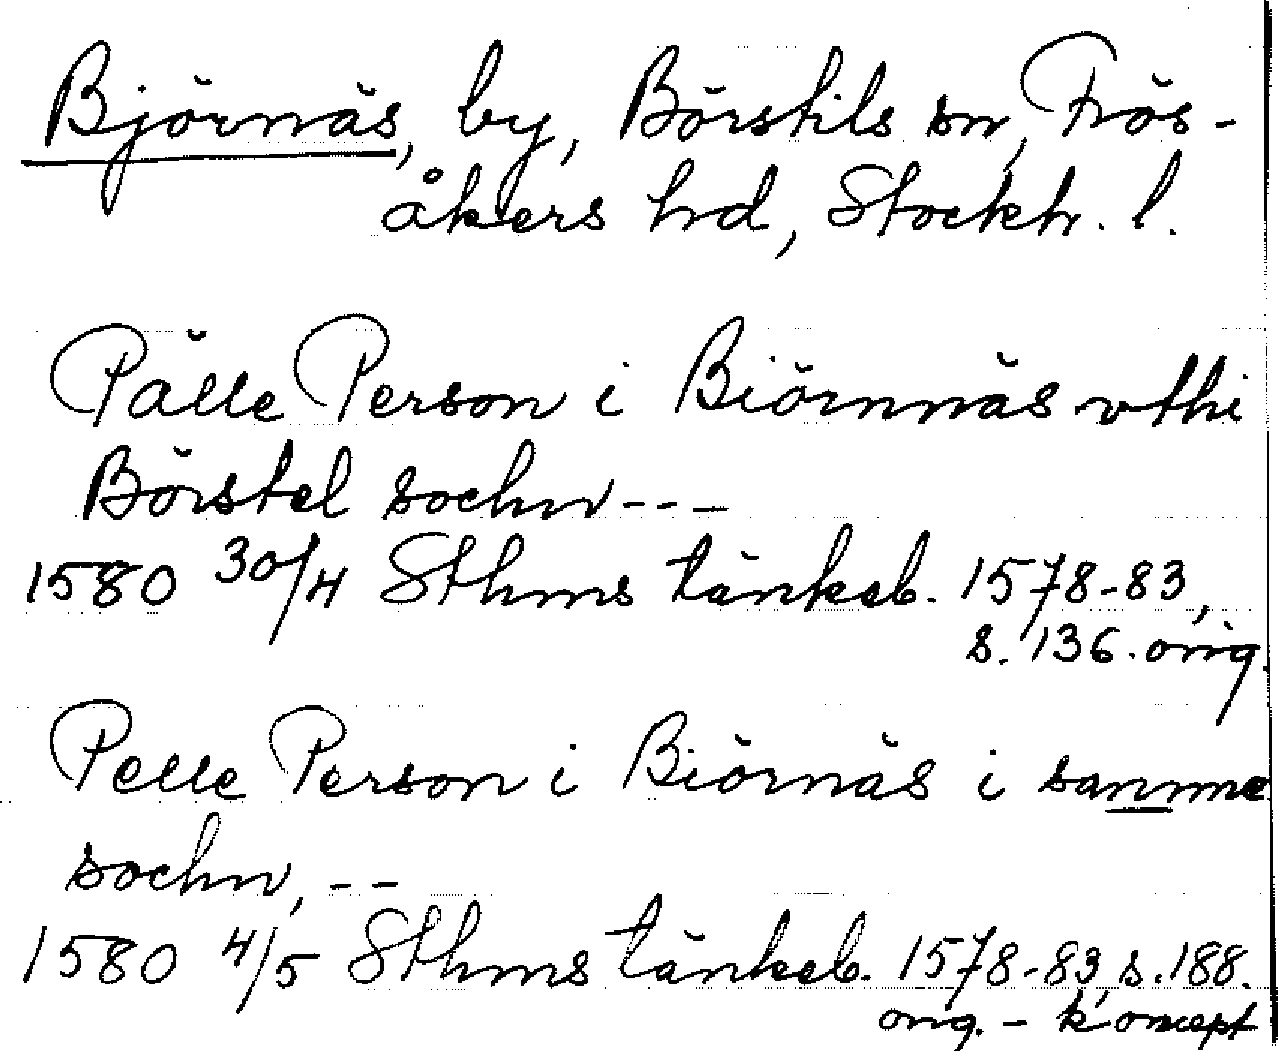 Björnäs, by, Börstils sn, Frös-
åkers hd, Stockh. l.
Pälle Person i Biörnnäs vthi
Börstel sochn---
1580 30/4 Sthms tänkeb. 1578-83,
s. 136. orig.
Pelle Person i Biörnäs i samme
sochn, --
1580 4/5 Sthms tänkeb. 1578-83, s. 188.
orig. - koncept